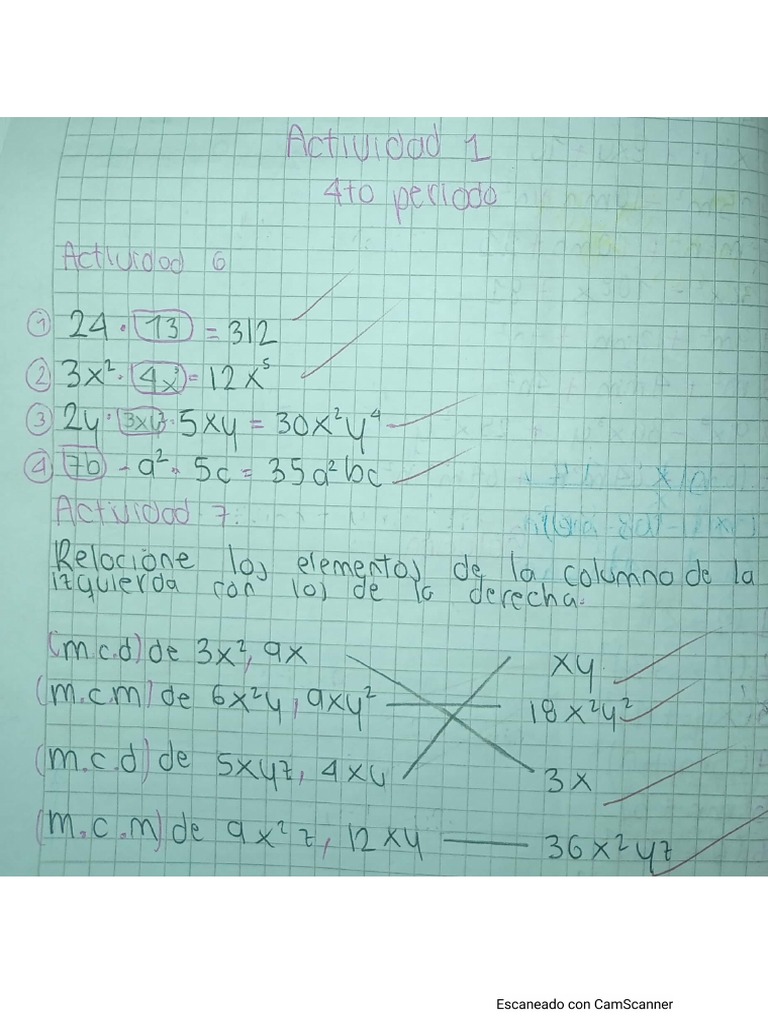 Actividad 1
4to periodo
Actividad 6
① 24 · 13 = 312
② 3x² · 4x³ = 12x⁵
③ 2y · 3xy² · 5xy = 30x²y⁴
④ 7b - a² · 5c = 35a²bc
Actividad 7.
Relacione los elementos de la columna de la
izquierda con los de la derecha.
(m.c.d) de 3x², 9x xy
(m.c.m) de 6x²y, 9xy² 18x²y²
(m.c.d) de 5xyz, 4xy 3x
(m.c.m) de 9x²z, 12xy 36x²yz
Escaneado con CamScanner